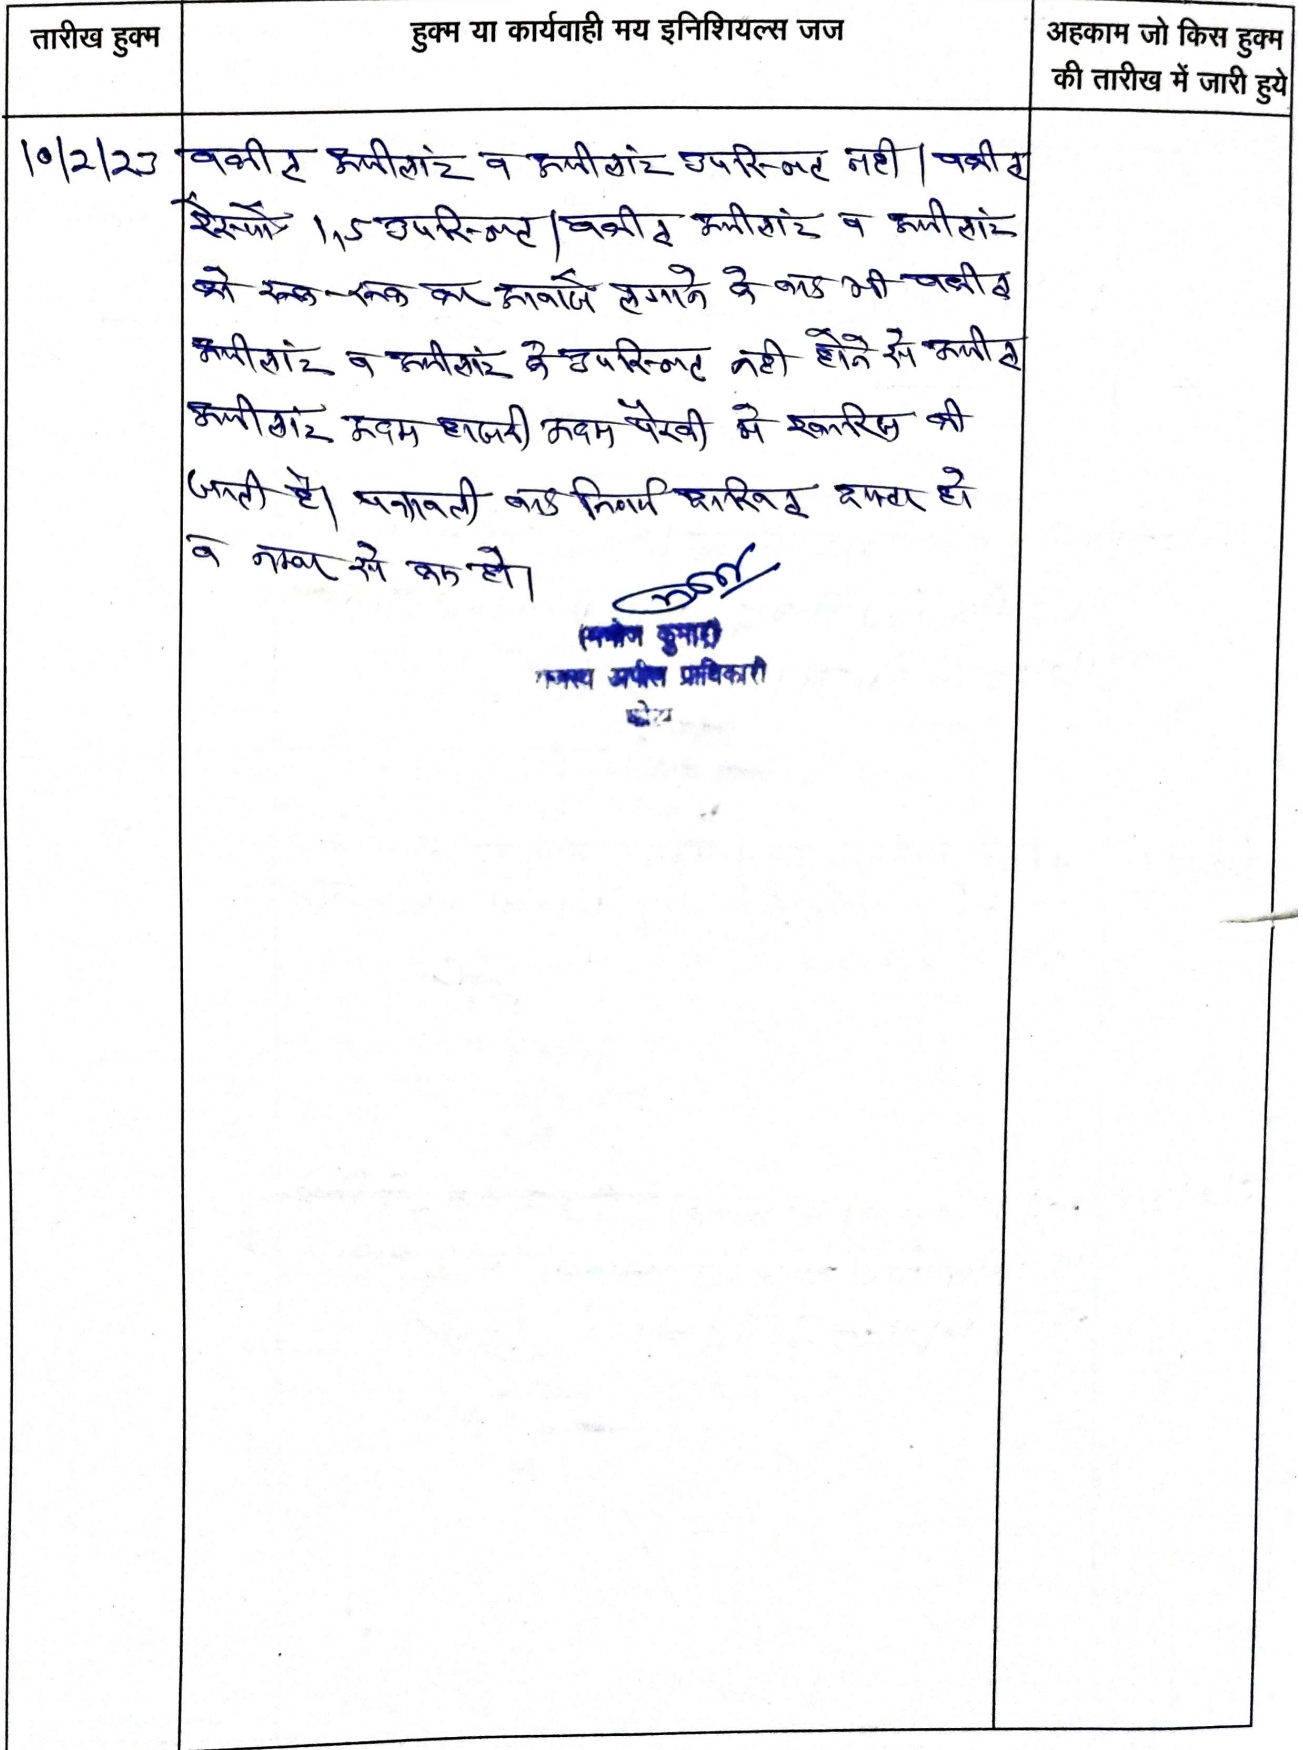 तारीख हुक्म
हुक्म या कार्यवाही मय इनिशियल्स जज
अहकाम जो किस हुक्म
की तारीख में जारी हुये
10/2/23
वकील अपीलांट व अपीलांट उपस्थित नही। वकील
रेस्पो 1,5 उपस्थित। वकील अपीलांट व अपीलांट
को रूक-रूक कर आवाजें लगाने के बाद भी वकील
अपीलांट व अपीलांट के उपस्थित नही होने से अपील
अपीलांट अदम हाजरी अदम पैरवी मे खारिज की
जाती है। पत्रावली बाद निर्णय दाखिल दफ्तर हो
व नम्बर से कम हो।
कुमार)
राजस्व अपील प्राधिकारी
कोटा